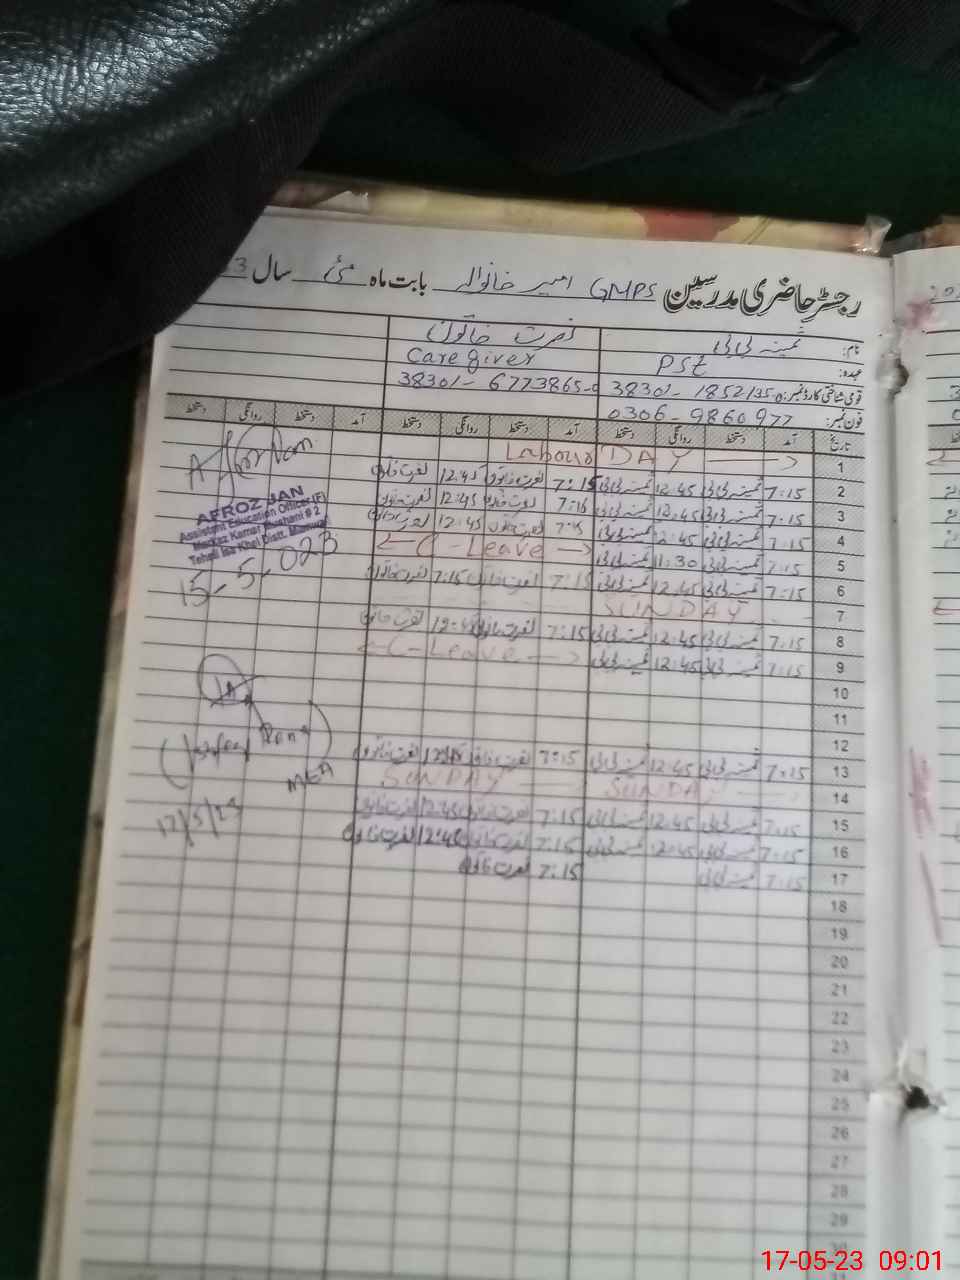 رجسٹر حاضری مدرسین GMPS امیر خانوالہ بابت ماہ مئی سال 23
نام: ثمینہ بی بی نصرت خاتون
عہدہ: PST Care giver
قومی شناختی کارڈ نمبر: 38301-1852135-0 38301-6773865-0
فون نمبر: 0306-9860977
تاریخ آمد دستخط روانگی دستخط آمد دستخط روانگی دستخط آمد دستخط روانگی دستخط
1 Labour DAY
2 7:15 ثمینہ بی بی 12:45 ثمینہ بی بی 7:15 نصرت خاتون 12:45 نصرت خاتون
3 7:15 ثمینہ بی بی 12:45 ثمینہ بی بی 7:15 نصرت خاتون 12:45 نصرت خاتون
4 7:15 ثمینہ بی بی 12:45 ثمینہ بی بی 7:15 نصرت خاتون 12:45 نصرت خاتون
5 7:15 ثمینہ بی بی 11:30 ثمینہ بی بی Leave
6 7:15 ثمینہ بی بی 12:45 ثمینہ بی بی 7:15 نصرت خاتون 7:15 نصرت خاتون
7 SUNDAY
8 7:15 ثمینہ بی بی 12:45 ثمینہ بی بی 7:15 نصرت خاتون 12:45 نصرت خاتون
9 7:15 ثمینہ بی بی 12:45 ثمینہ بی بی Leave
10
11
12
13 7:15 ثمینہ بی بی 12:45 ثمینہ بی بی 7:15 نصرت خاتون 12:45 نصرت خاتون
14 SUNDAY SUNDAY
15 7:15 ثمینہ بی بی 12:45 ثمینہ بی بی 7:15 نصرت خاتون 12:45 نصرت خاتون
16 7:15 ثمینہ بی بی 12:45 ثمینہ بی بی 7:15 نصرت خاتون 12:45 نصرت خاتون
17 7:15 ثمینہ بی بی 7:15 نصرت خاتون
18
19
20
21
22
23
24
25
26
27
28
29
30
AFROZ JAN
Assistant Education Officer (F)
Markaz Kamar Mushani # 2
Tehsil Isa Khel Distt. Mianwali
15-5-023
MEA
12/5/23
17-05-23 09:01